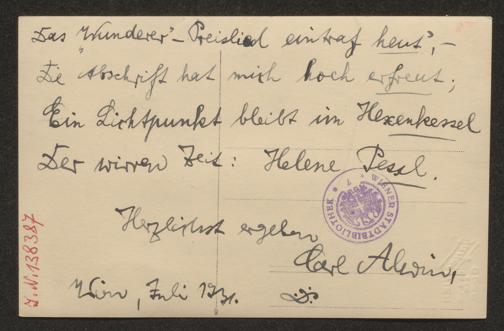 Das "Wunderer"-Preislied eintraf heut', –
Die Abschrift hat mich hoch erfreut;
Ein Lichtpunkt bleibt im Hexenkessel
Der wirren Zeit: Helene Pessl.
Herzlichst ergeben
Carl Alwin,
Wien, Juli 1931.
WIENER STADTBIBLIOTHEK
I.N. 138387